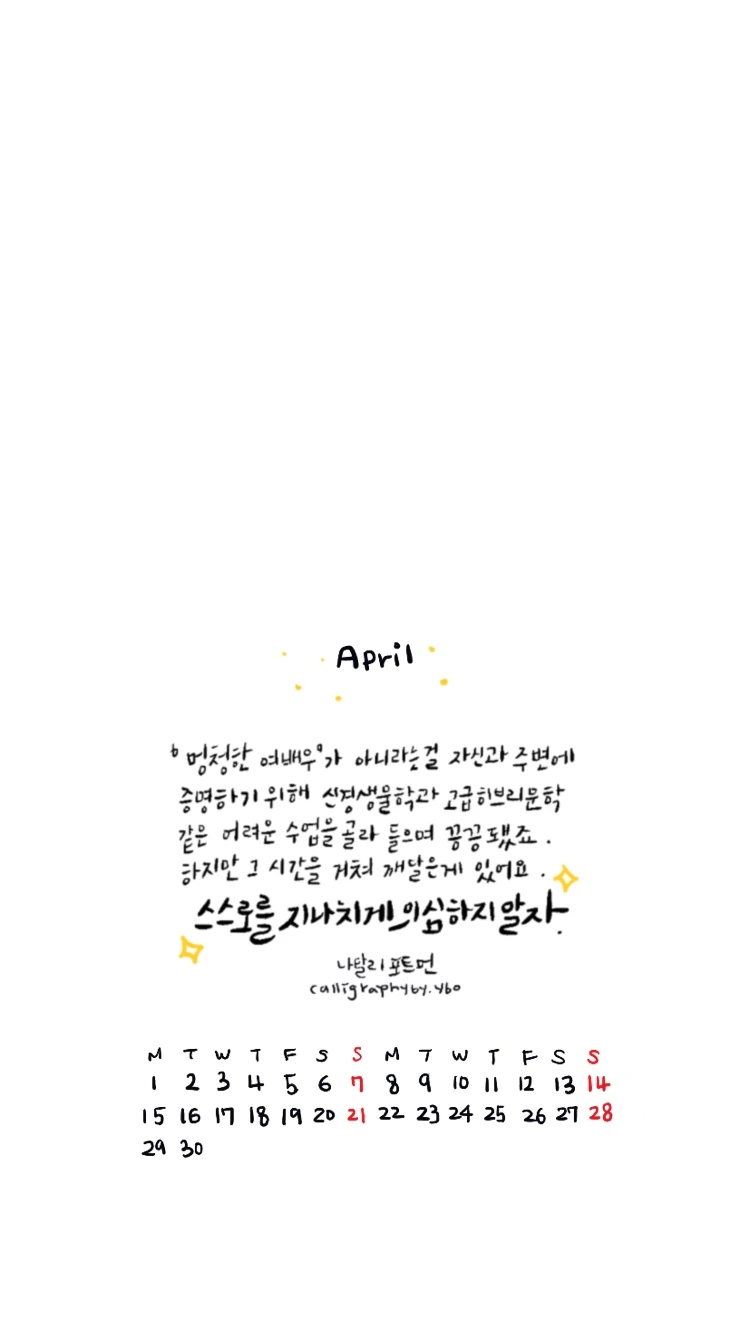 April
"멍청한 여배우"가 아니라는걸 자신과 주변에
증명하기 위해 신경생물학과 고급히브리문학
같은 어려운 수업을 골라 들으며 끙끙댔죠.
하지만 그 시간을 거쳐 깨달은게 있어요.
스스로를 지나치게 의심하지 말자.
나탈리 포트먼
calligraphyby.ybo
M T W T F S S M T W T F S S
1 2 3 4 5 6 7 8 9 10 11 12 13 14
15 16 17 18 19 20 21 22 23 24 25 26 27 28
29 30